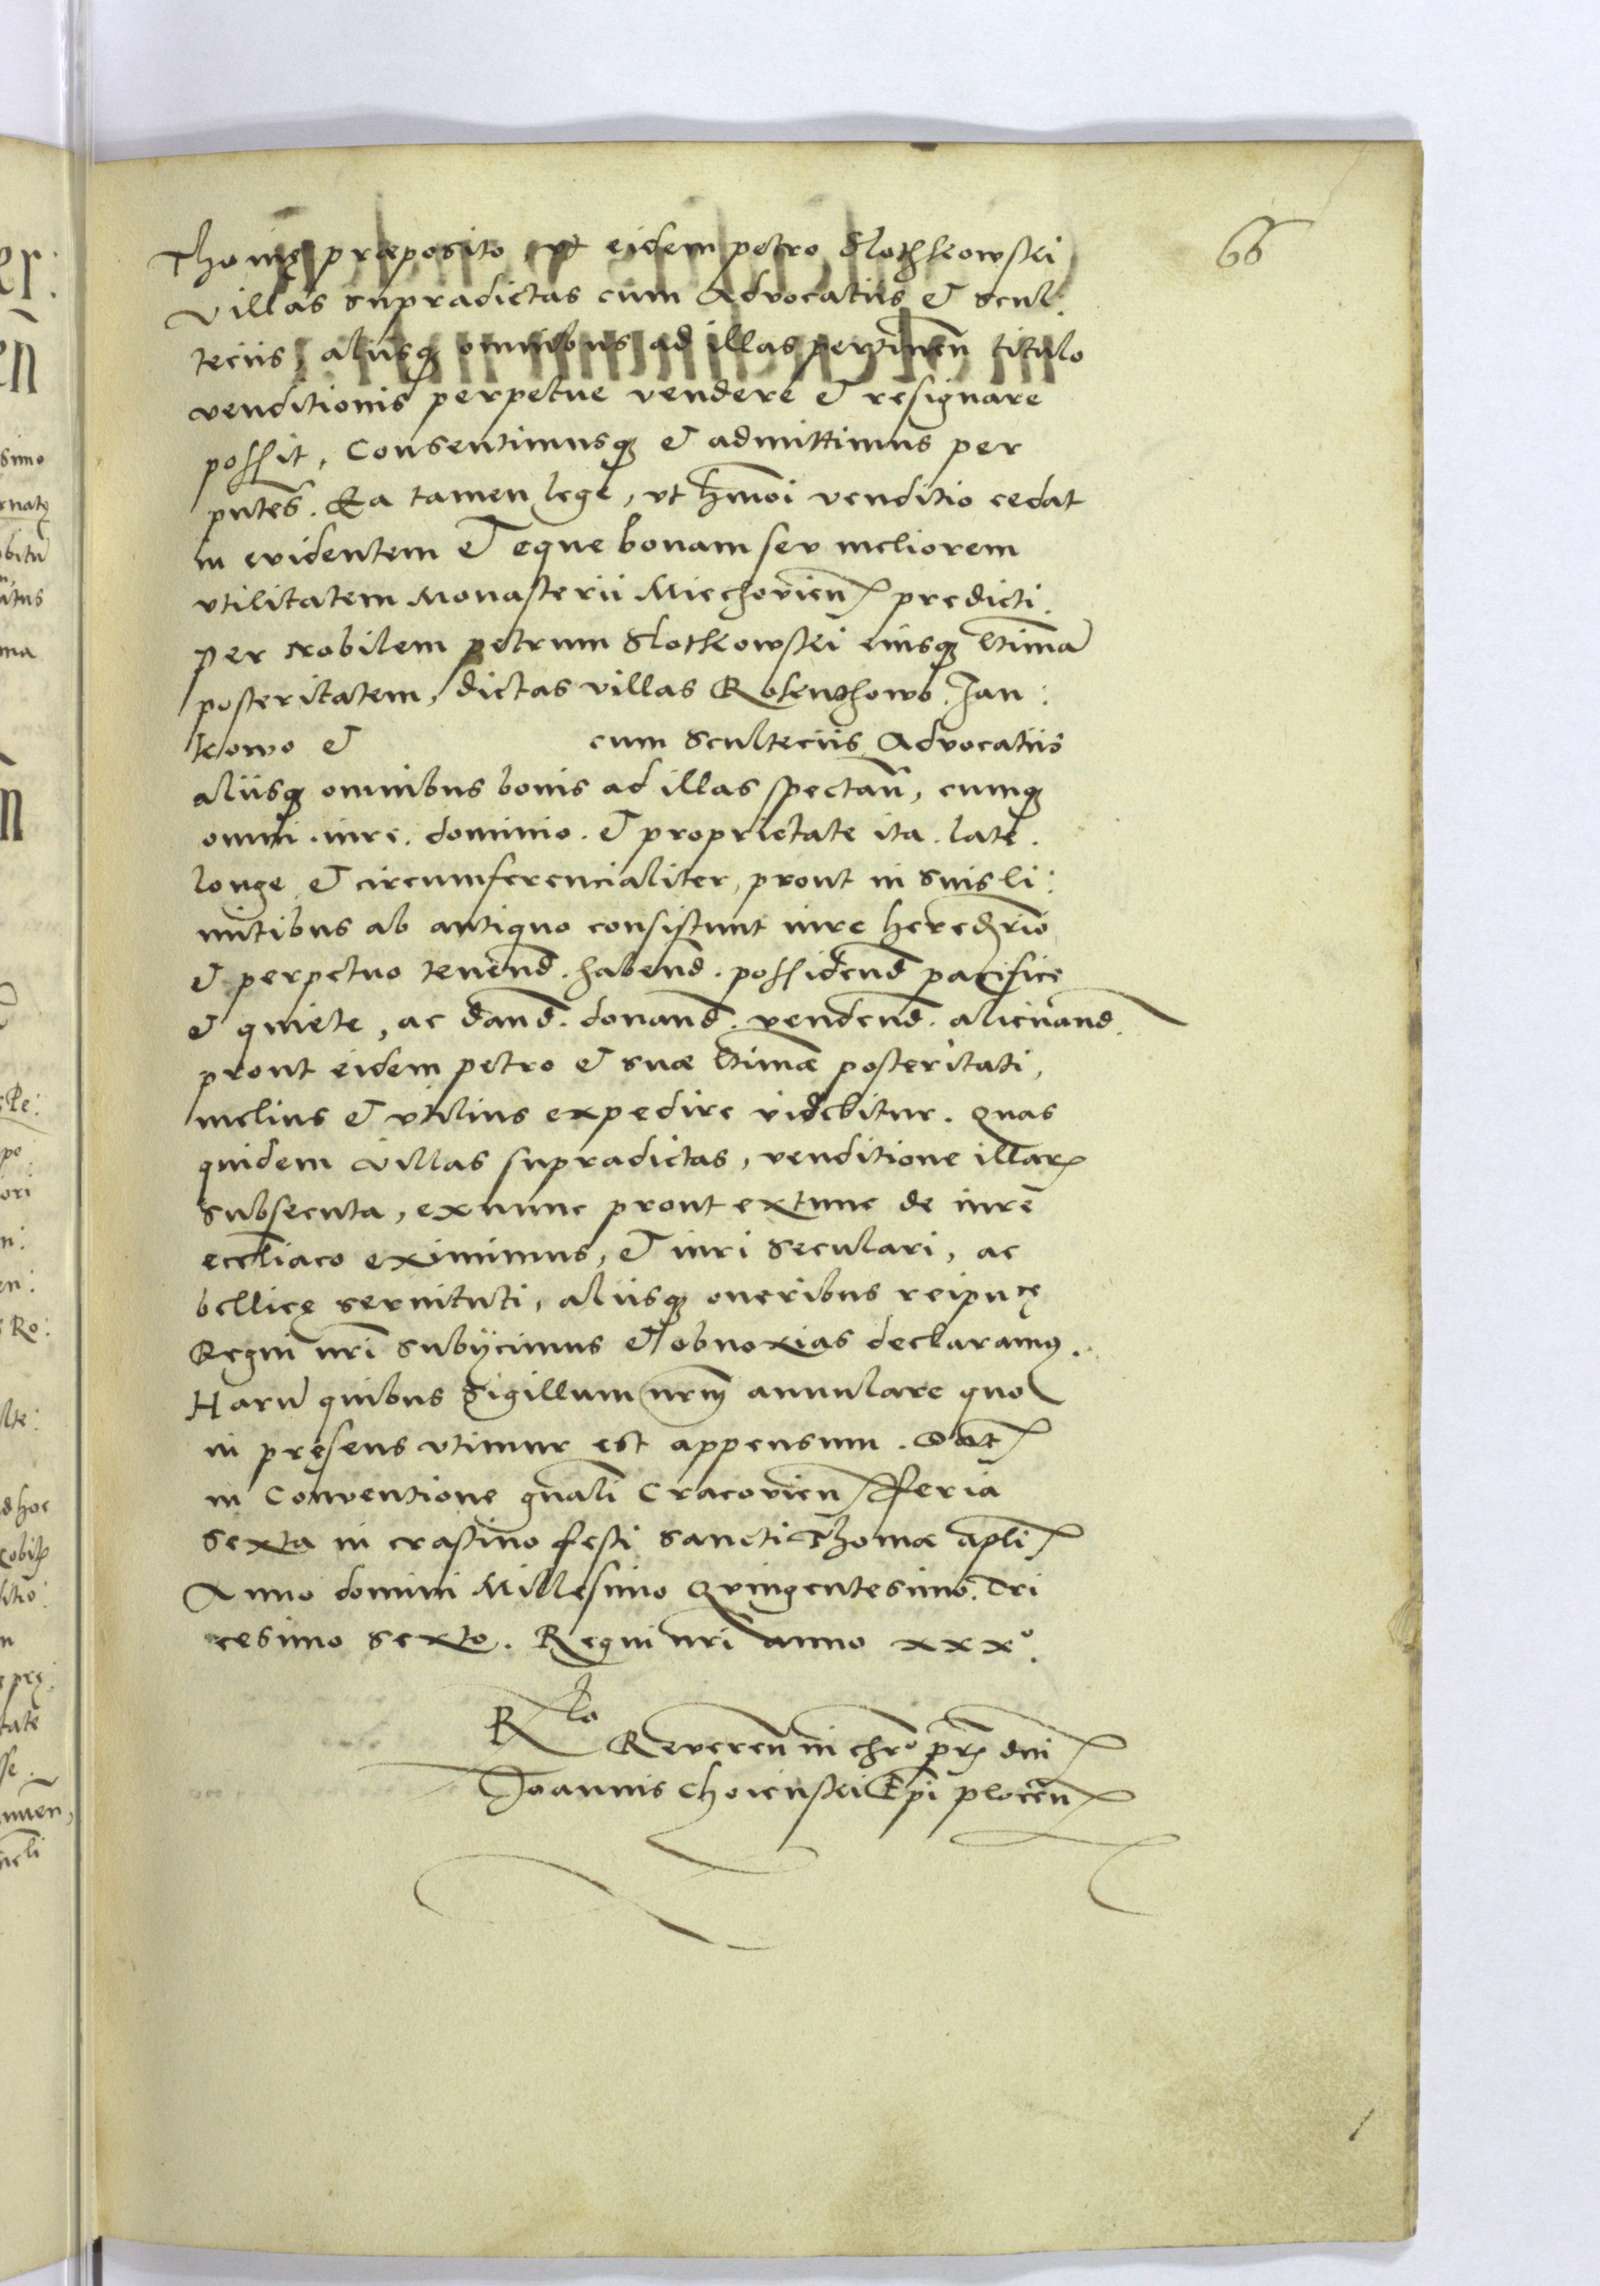 66
Thomę præposito, vt eidem petro Slothkowskj
villas supradictas cum Advocatiis & scul:
teciis, aliisq omnibus ad illas pertinen titulo
venditionis perpetue vendere & resignare
possit, Consentimusq & admittimus per
pntes. Ea tamen lege, vt hmoi venditio cedat
in evidentem & eque bonam seu meliorem
vtilitatem Monasterii Miechovien predicti.
per Nobilem petrum Slotkowskj eiusq ltima
posteritatem, dictas villas Jan:
kowo & cum Sculteciis Advocatiis
aliisq omnibus bonis ad illas spectan, cumq
omni. iure. dominio. & proprietate ita. late.
longe & circumferencialiter, prout in suis li:
mitibus ab antiquo consistunt iure heredrio
& perpetuo tenend. habend. possidend pacifice
& quiete, ac dand. donand. vendend. alienand.
prout eidem petro & suæ ltimæ posteritati,
melius & vtilius expedire videbitur. Quas
quidem villas supradictas, venditione illar
subsecuta, ex nunc prout extunc de iure
eccliaco eximimus, & iuri seculari, ac
bellicę servituti, aliisq oneribus reipucę
Regni nri subijcimus & obnoxias declaramus.
Haru quibus Sigillum nrm annulare quo
in pręsens vtimur est appensum. Dat
in Conventione gnali Cracovien Feria
Sexta in crastino festi Sancti Thomæ apli
Anno domini Millesimo Quingentesimo. Tri
cesimo sexto. Regni nri anno xxxº.
Rlo
Reveren in chro pr dni
Joannis Choienskj Epi plocen